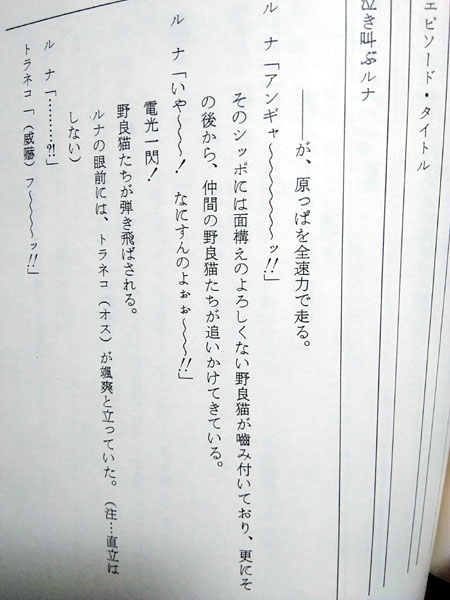 エピソード・タイトル
泣き叫ぶルナ
――が、原っぱを全速力で走る。
ルナ「アンギャ〜〜〜〜〜〜ッ!!」
そのシッポには面構えのよろしくない野良猫が嚙み付いており、更にそ
の後から、仲間の野良猫たちが追いかけてきている。
ルナ「いや〜〜〜！　なにすんのよぉぉ〜〜〜!!」
電光一閃！
野良猫たちが弾き飛ばされる。
ルナの眼前には、トラネコ（オス）が颯爽と立っていた。（注…直立は
しない）
ルナ「………?!」
トラネコ「（威嚇）フ〜〜〜〜ッ!!」